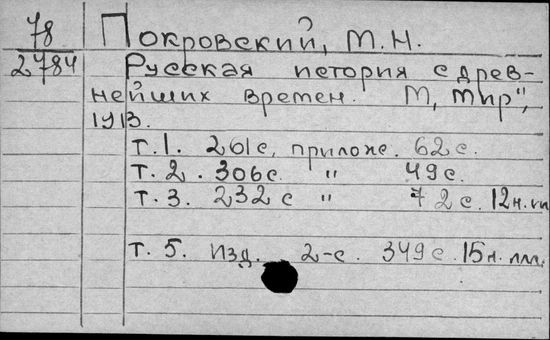 78
2784
Покровский, М.Н.
Русская история с древ-
нейших времен. М, "Мир",
1913.
т. 1. 261с, прилож. 62с.
т. 2. 306с. " 49с.
т. 3. 232 с " 72с. 12н.
т. 5. Изд. 2-е. 349с. 15н. илл.